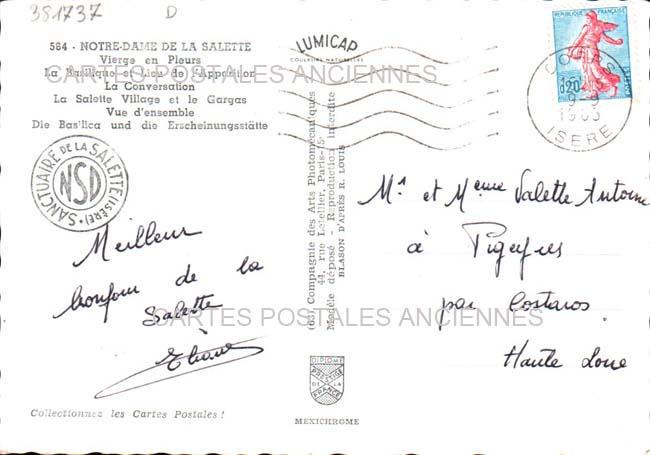 381737 D
584 - NOTRE-DAME DE LA SALETTE
Vierge en Pleurs
La Basilique et Lieu de l'Apparition
La Conversation
La Salette Village et le Gargas
Vue d'ensemble
Die Bas'lica und die Erscheinungsstätte
CARTES POSTALES ANCIENNES
LUMICAP
COULEURS NATURELLES
REPUBLIQUE FRANÇAISE
0,20
9-9
ISERE
SANCTUAIRE DE LA SALETTE (ISÈRE)
NSD
Meilleur
bonjour de la
Salette
(63) Compagnie des Arts Photomécaniques
44, rue Letellier, Paris-15e
Modèle déposé - Reproduction interdite
BLASON D'APRÈS R. LOUIS
Mr et Mme Valette Antoine
à
par Costaros
Haute Loire
CARTES POSTALES ANCIENNES
DIPLOME
PRESTIGE
DE LA
FRANCE
MEXICHROME
Collectionnez les Cartes Postales !